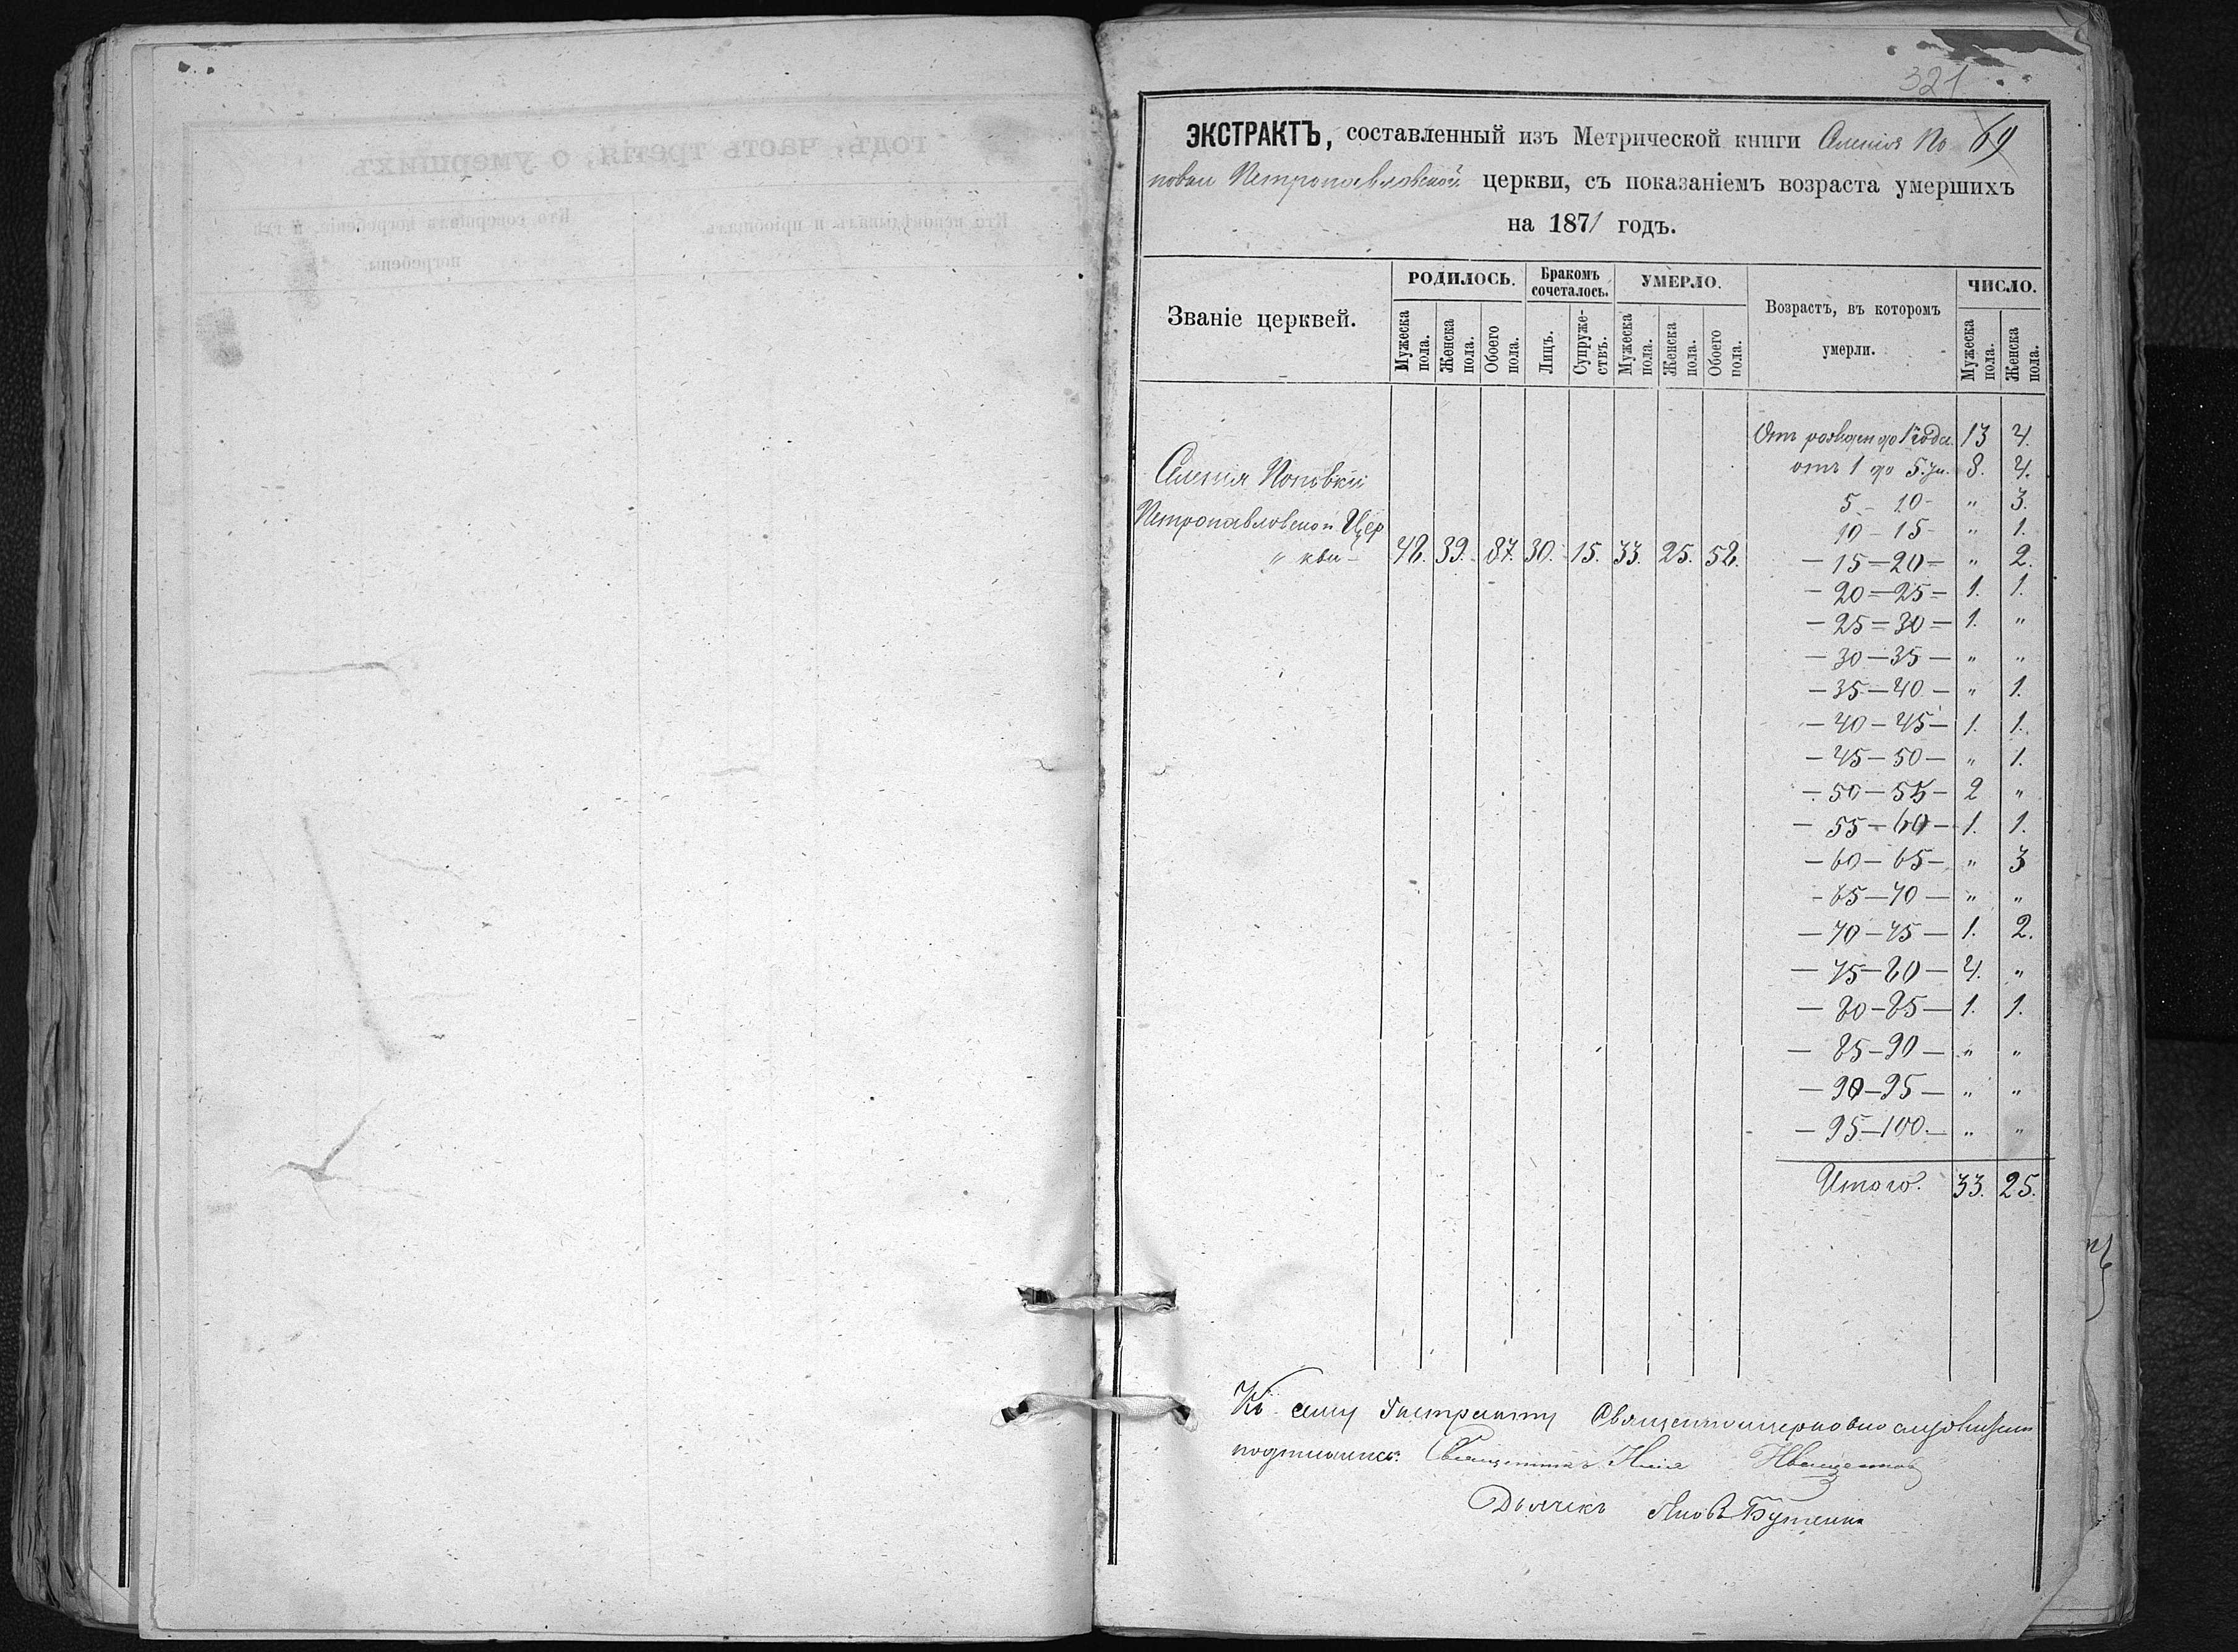 321
ЭКСТРАКТЪ, составленный изъ Метрической книги Селенія По 69
повки Петропавловской церкви, съ показаніемъ возраста умершихъ
на 1871 годъ.
Званіе церквей.
РОДИЛОСЬ.
Мужеска пола.
Женска пола.
Обоего пола.
Бракомъ сочеталось.
Лицъ.
Супружествъ.
УМЕРЛО.
Мужеска пола.
Женска пола.
Обоего пола.
Возрастъ, въ которомъ
умерли.
ЧИСЛО.
Мужеска пола.
Женска пола.
Селенія Поповки
Петропавловской Цер
„ кви — 48. 39. 87. 30. 15. 33. 25. 58.
Отъ рожден до 1 года. 13 4.
отъ 1 до 5. 8. 4.
5 - 10 - „ 3.
10 - 15 - „ 1.
— 15 — 20 — „ 2.
— 20 — 25 — 1. 1.
— 25 — 30 — 1. „
— 30 — 35 — „ „
— 35 — 40 — „ 1.
— 40 — 45 — 1. 1.
— 45 — 50 — „ 1.
— 50 — 55 — 2 „
— 55 — 60 — 1. 1.
— 60 — 65 — „ 3
— 65 — 70 — „ „
— 70 — 75 — 1. 2.
— 75 — 80 — 4. „
— 80 — 85 — 1. 1.
— 85 — 90 — „ „
— 90 — 95 — „ „
— 95 — 100 — „ „
Итого. 33. 25.
Къ сему Экстракту Священноцерковнослужители
подписались: Священникъ
Дьячекъ Яковъ Бутенко
годъ, часть третія, о умершихъ
Кто исповѣдывалъ и пріобщалъ.
Кто совершалъ погребеніе, и гдѣ
погребены.